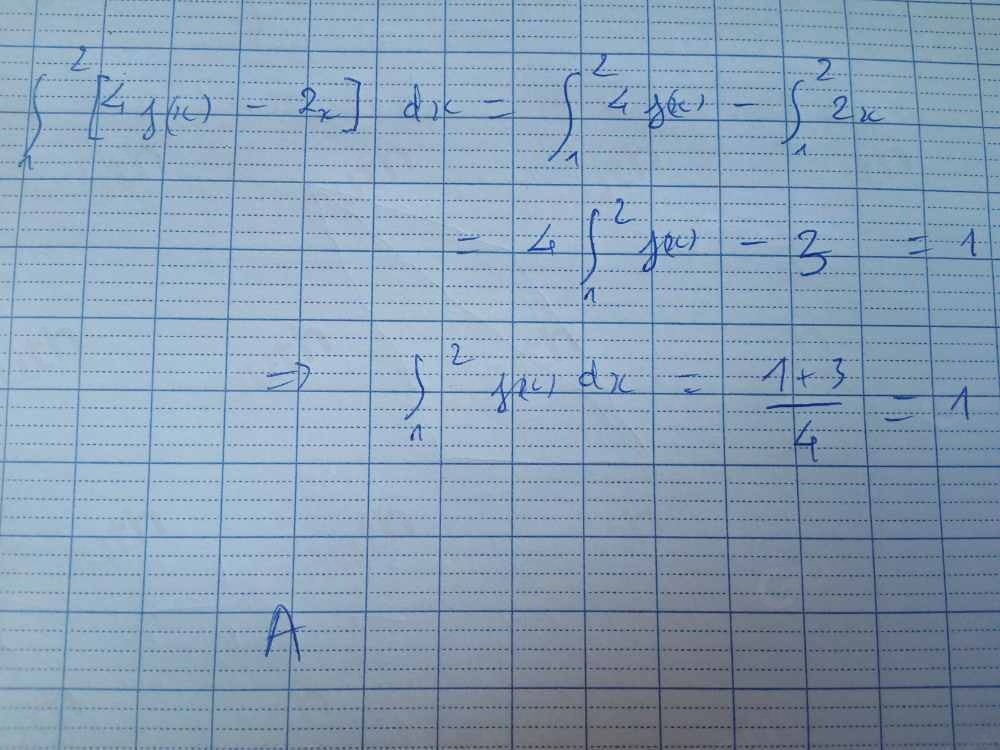 ∫₁² [4 f(x) - 2x] dx = ∫₁² 4 f(x) - ∫₁² 2x
= 4 ∫₁² f(x) - 3 = 1
⇒ ∫₁² f(x) dx = (1+3)/4 = 1
A